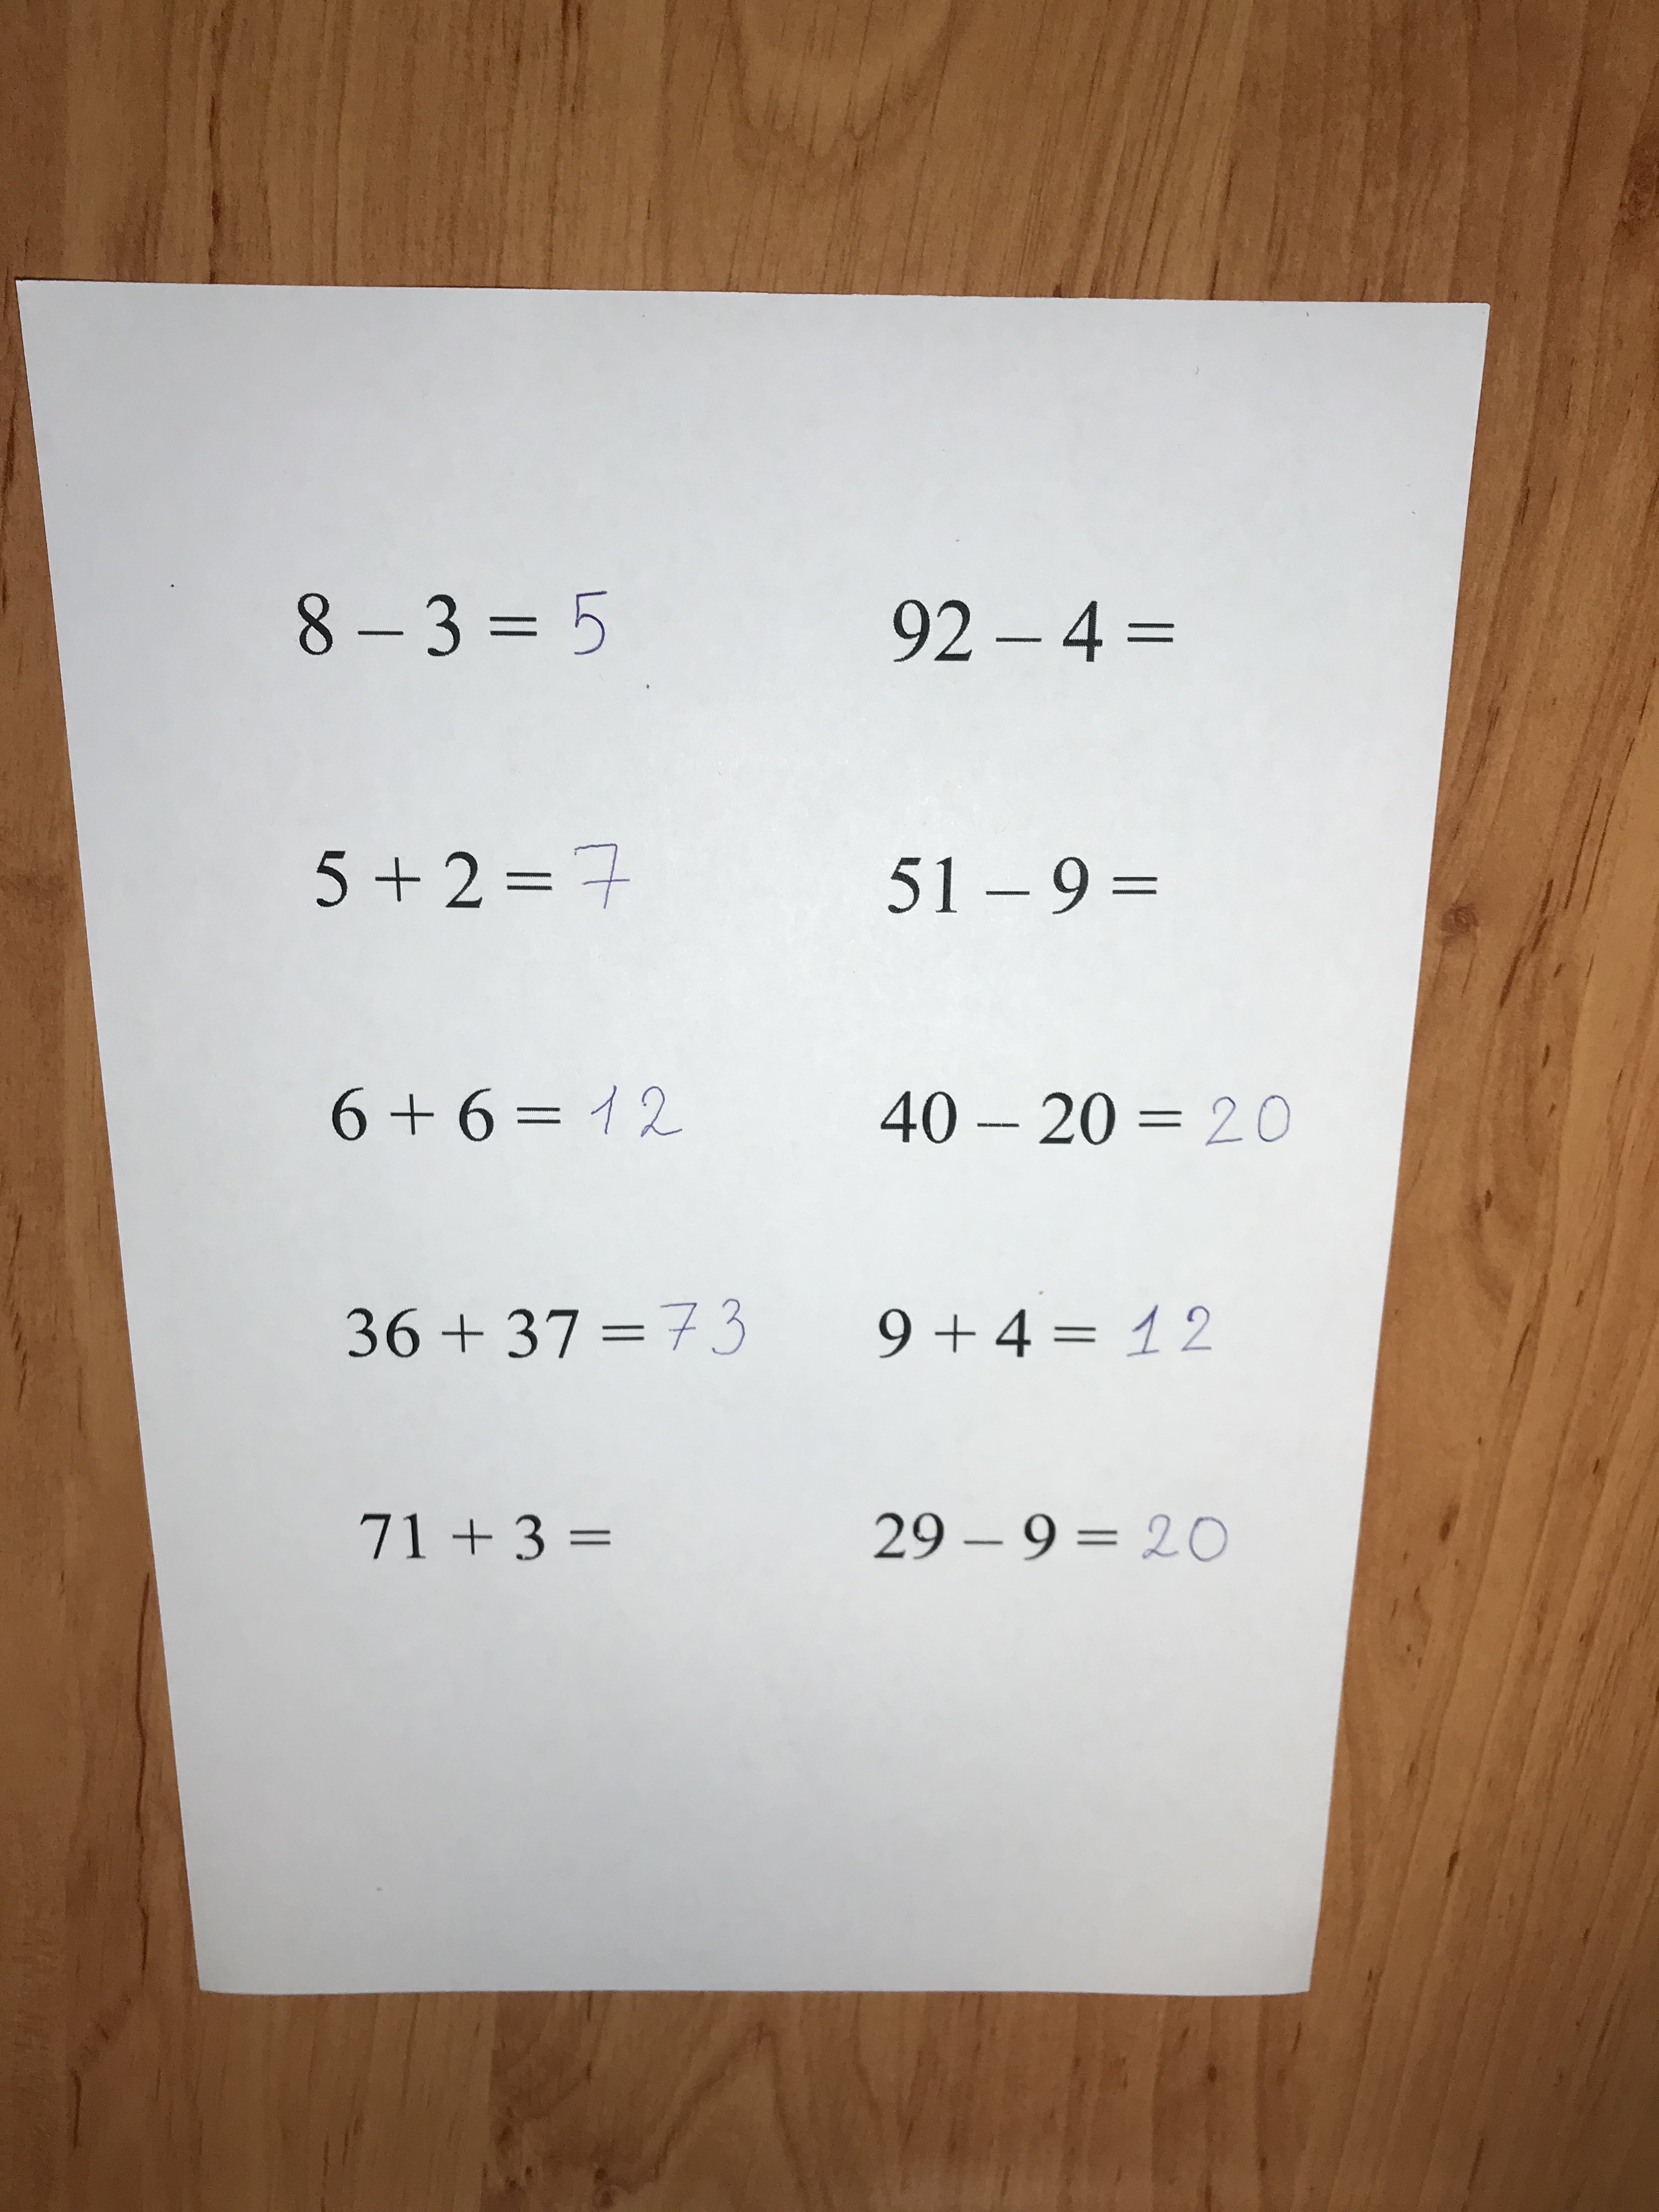 8 – 3 = 5
5 + 2 = 7
6 + 6 = 12
36 + 37 = 73
71 + 3 =
92 – 4 =
51 – 9 =
40 – 20 = 20
9 + 4 = 12
29 – 9 = 20